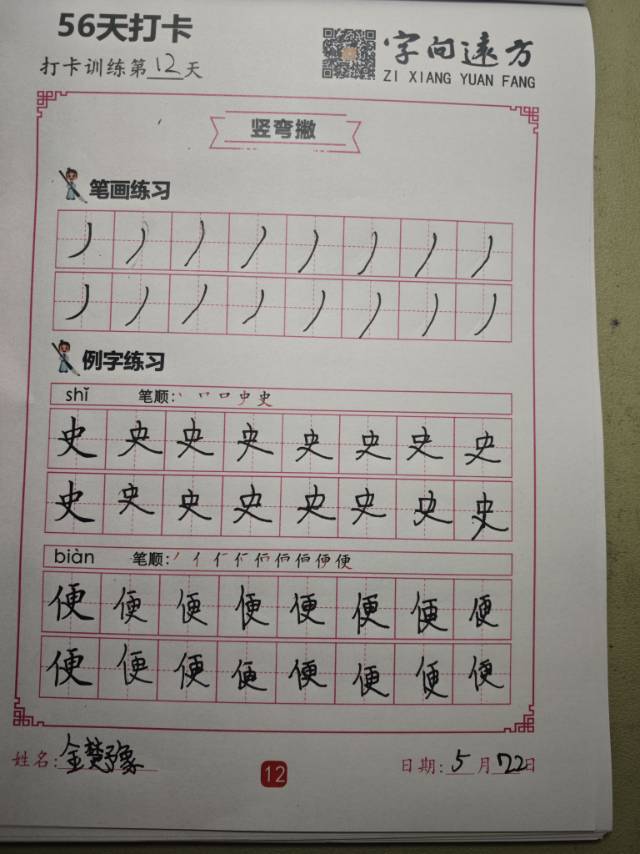 56天打卡
打卡训练第12天
字向远方
ZI XIANG YUAN FANG
竖弯撇
笔画练习
丿丿丿丿丿丿丿丿
丿丿丿丿丿丿丿丿
例字练习
shǐ 笔顺:
史史史史史史史史
史史史史史史史史
biàn 笔顺:
便便便便便便便便
便便便便便便便便
姓名:金楚豫
12
日期:5月22日